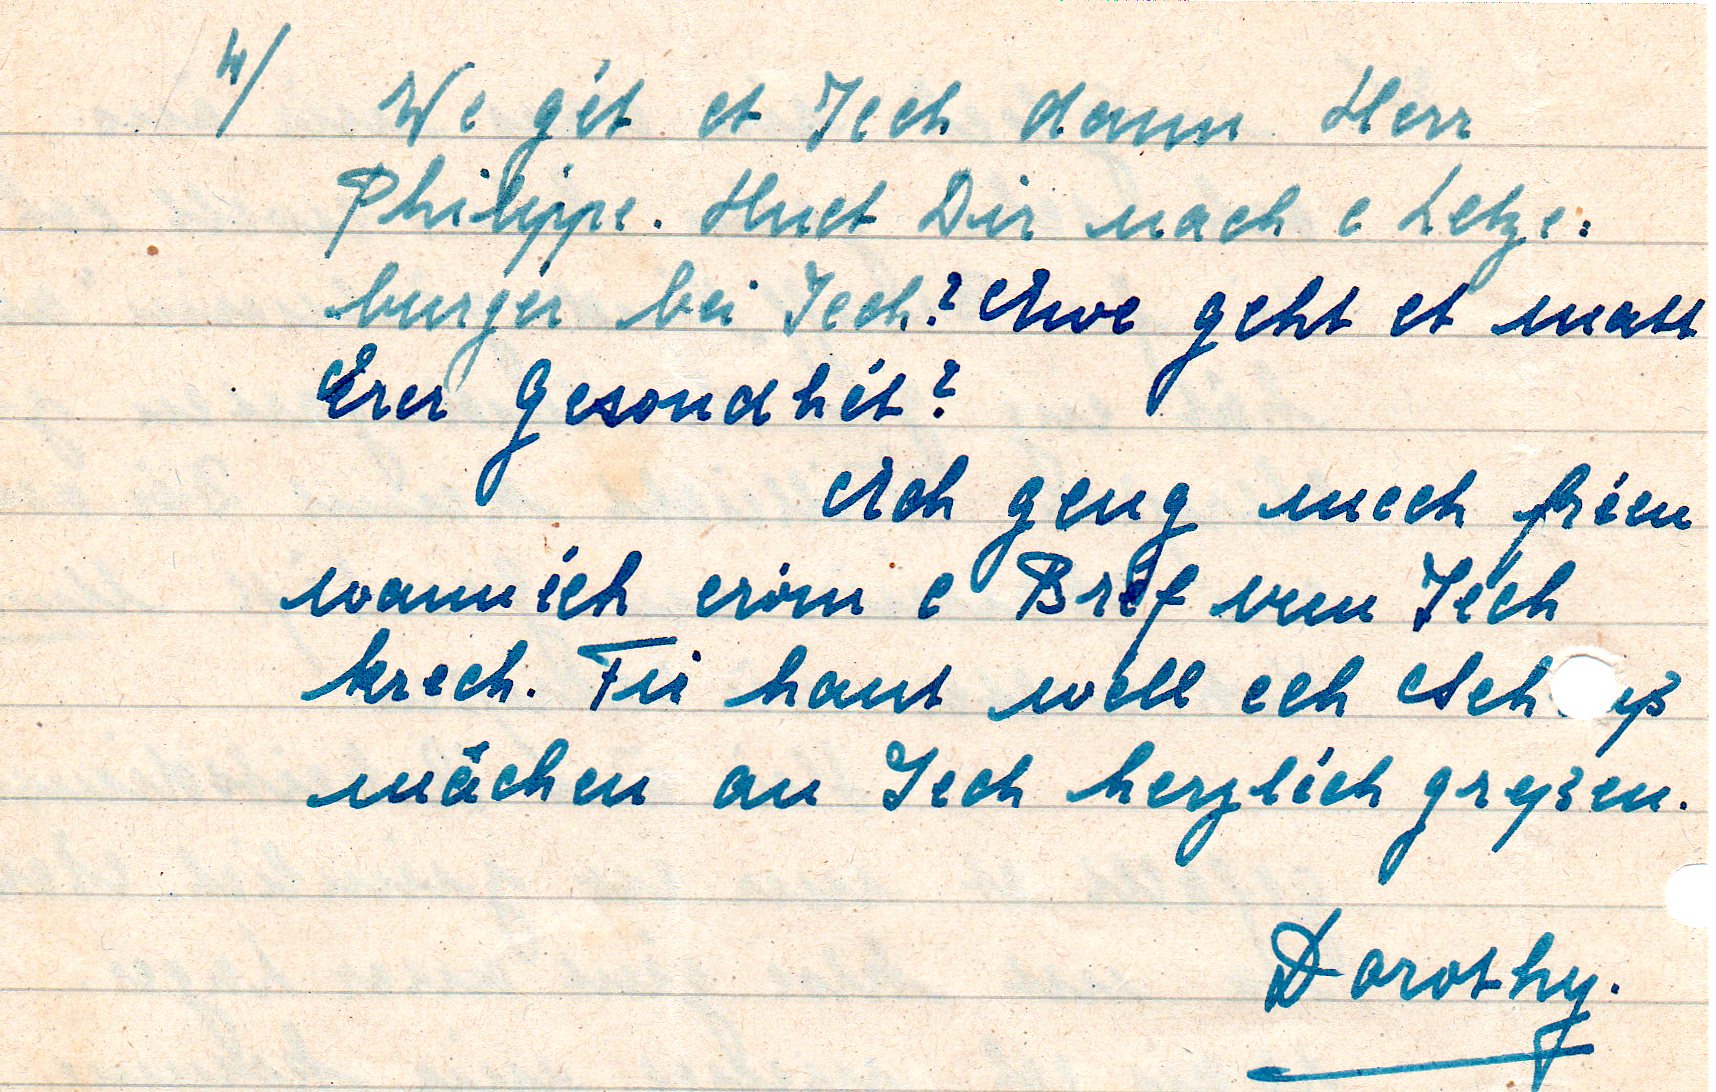 4/ We gét et Iech dann Herr
Philippe. Huet Dir nach e Letze:
burger bei Iech? Awe geht et matt
Erer Gesondhét?
Ach geng mech fréen
wann éch eröm e Bréf vun Iech
krech. Fir haut wëll ech Sch uß
mächen an Iech herzléch gréßen.
Dorothy.